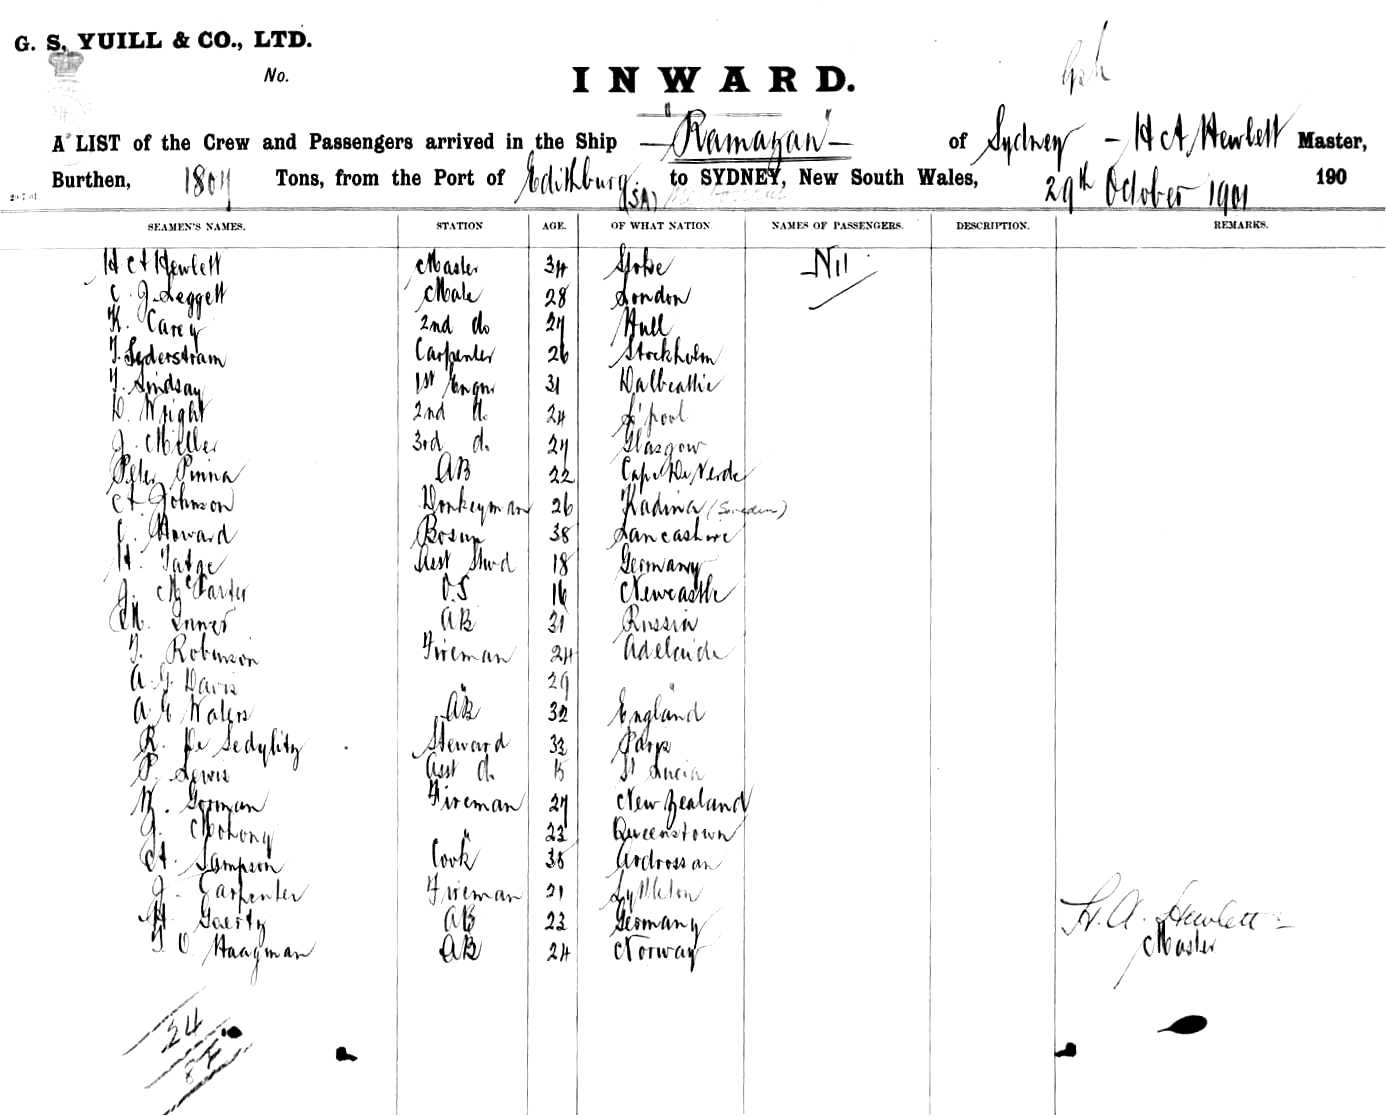 G. S. YUILL & CO., LTD.
No.
INWARD.
A LIST of the Crew and Passengers arrived in the Ship "Ramazan" of Sydney - H A Hewlett Master,
Burthen, 1807 Tons, from the Port of Edithburg (SA) to SYDNEY, New South Wales, 29th October 1901 190
SEAMEN'S NAMES. STATION AGE. OF WHAT NATION NAMES OF PASSENGERS. DESCRIPTION. REMARKS.
H A Hewlett Master 34 Stoke Nil
C. J. Leggett Mate 28 London
K. Carey 2nd do 27 Hull
Syderstram Carpenter 26 Stockholm
Lindsay 1st Engnr 31 Dalbeattie
D. Wright 2nd d. 24 L'pool
J. Miller 3rd d. 27 Glasgow
Peter Pinna AB 22 Cape De Verde
A. Johnson Donkeyman 26 Kadina (Sweden)
C. Howard Bosun 38 Lancashire
H. Tatge Asst Stwd 18 Germany
J. McFarter O.S 16 Newcastle
M. AB 31 Russia
T. Robinson Fireman 24 Adelaide
A. G Davis " 29 "
A. G Waters AB 32 England
R. De Sedylitz Steward 33
P. Lewis Asst d. 15 St Lucia
W. Gorman Fireman 27 New Zealand
J. Mohony " 23 Queenstown
A. Sampson Cook 35 Ardrossan
J. Carpenter Fireman 21 Lyttleton
H. Goertz AB 23 Germany
T. O Haagman AB 24 Norway
H. A. Hewlett
Master
24